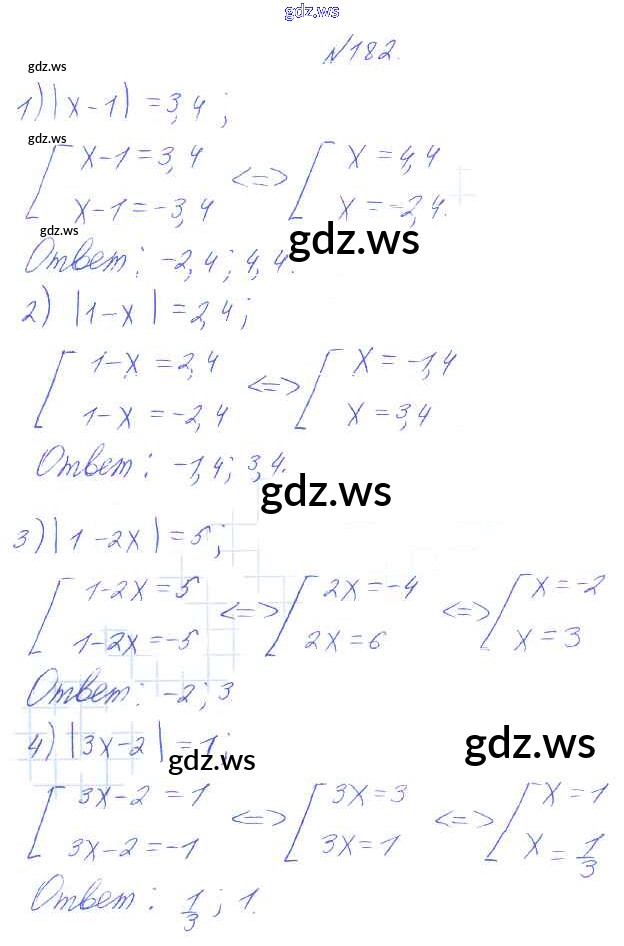 gdz.ws
№182.
gdz.ws
1) |x-1| = 3,4;
gdz.ws
[ x-1=3,4 <=> [ x=4,4
x-1=-3,4 x=-2,4.
gdz.ws
gdz.ws
Ответ: -2,4; 4,4.
2) |1-x| = 2,4;
[ 1-x=2,4 <=> [ x=-1,4
1-x=-2,4 x=3,4
Ответ: -1,4; 3,4.
gdz.ws
3) |1-2x| = 5;
[ 1-2x=5 <=> [ 2x=-4 <=> [ x=-2
1-2x=-5 2x=6 x=3
Ответ: -2; 3.
4) |3x-2| = 1;
gdz.ws
gdz.ws
[ 3x-2=1 <=> [ 3x=3 <=> [ x=1
3x-2=-1 3x=1 x=1/3
Ответ: 1/3; 1.